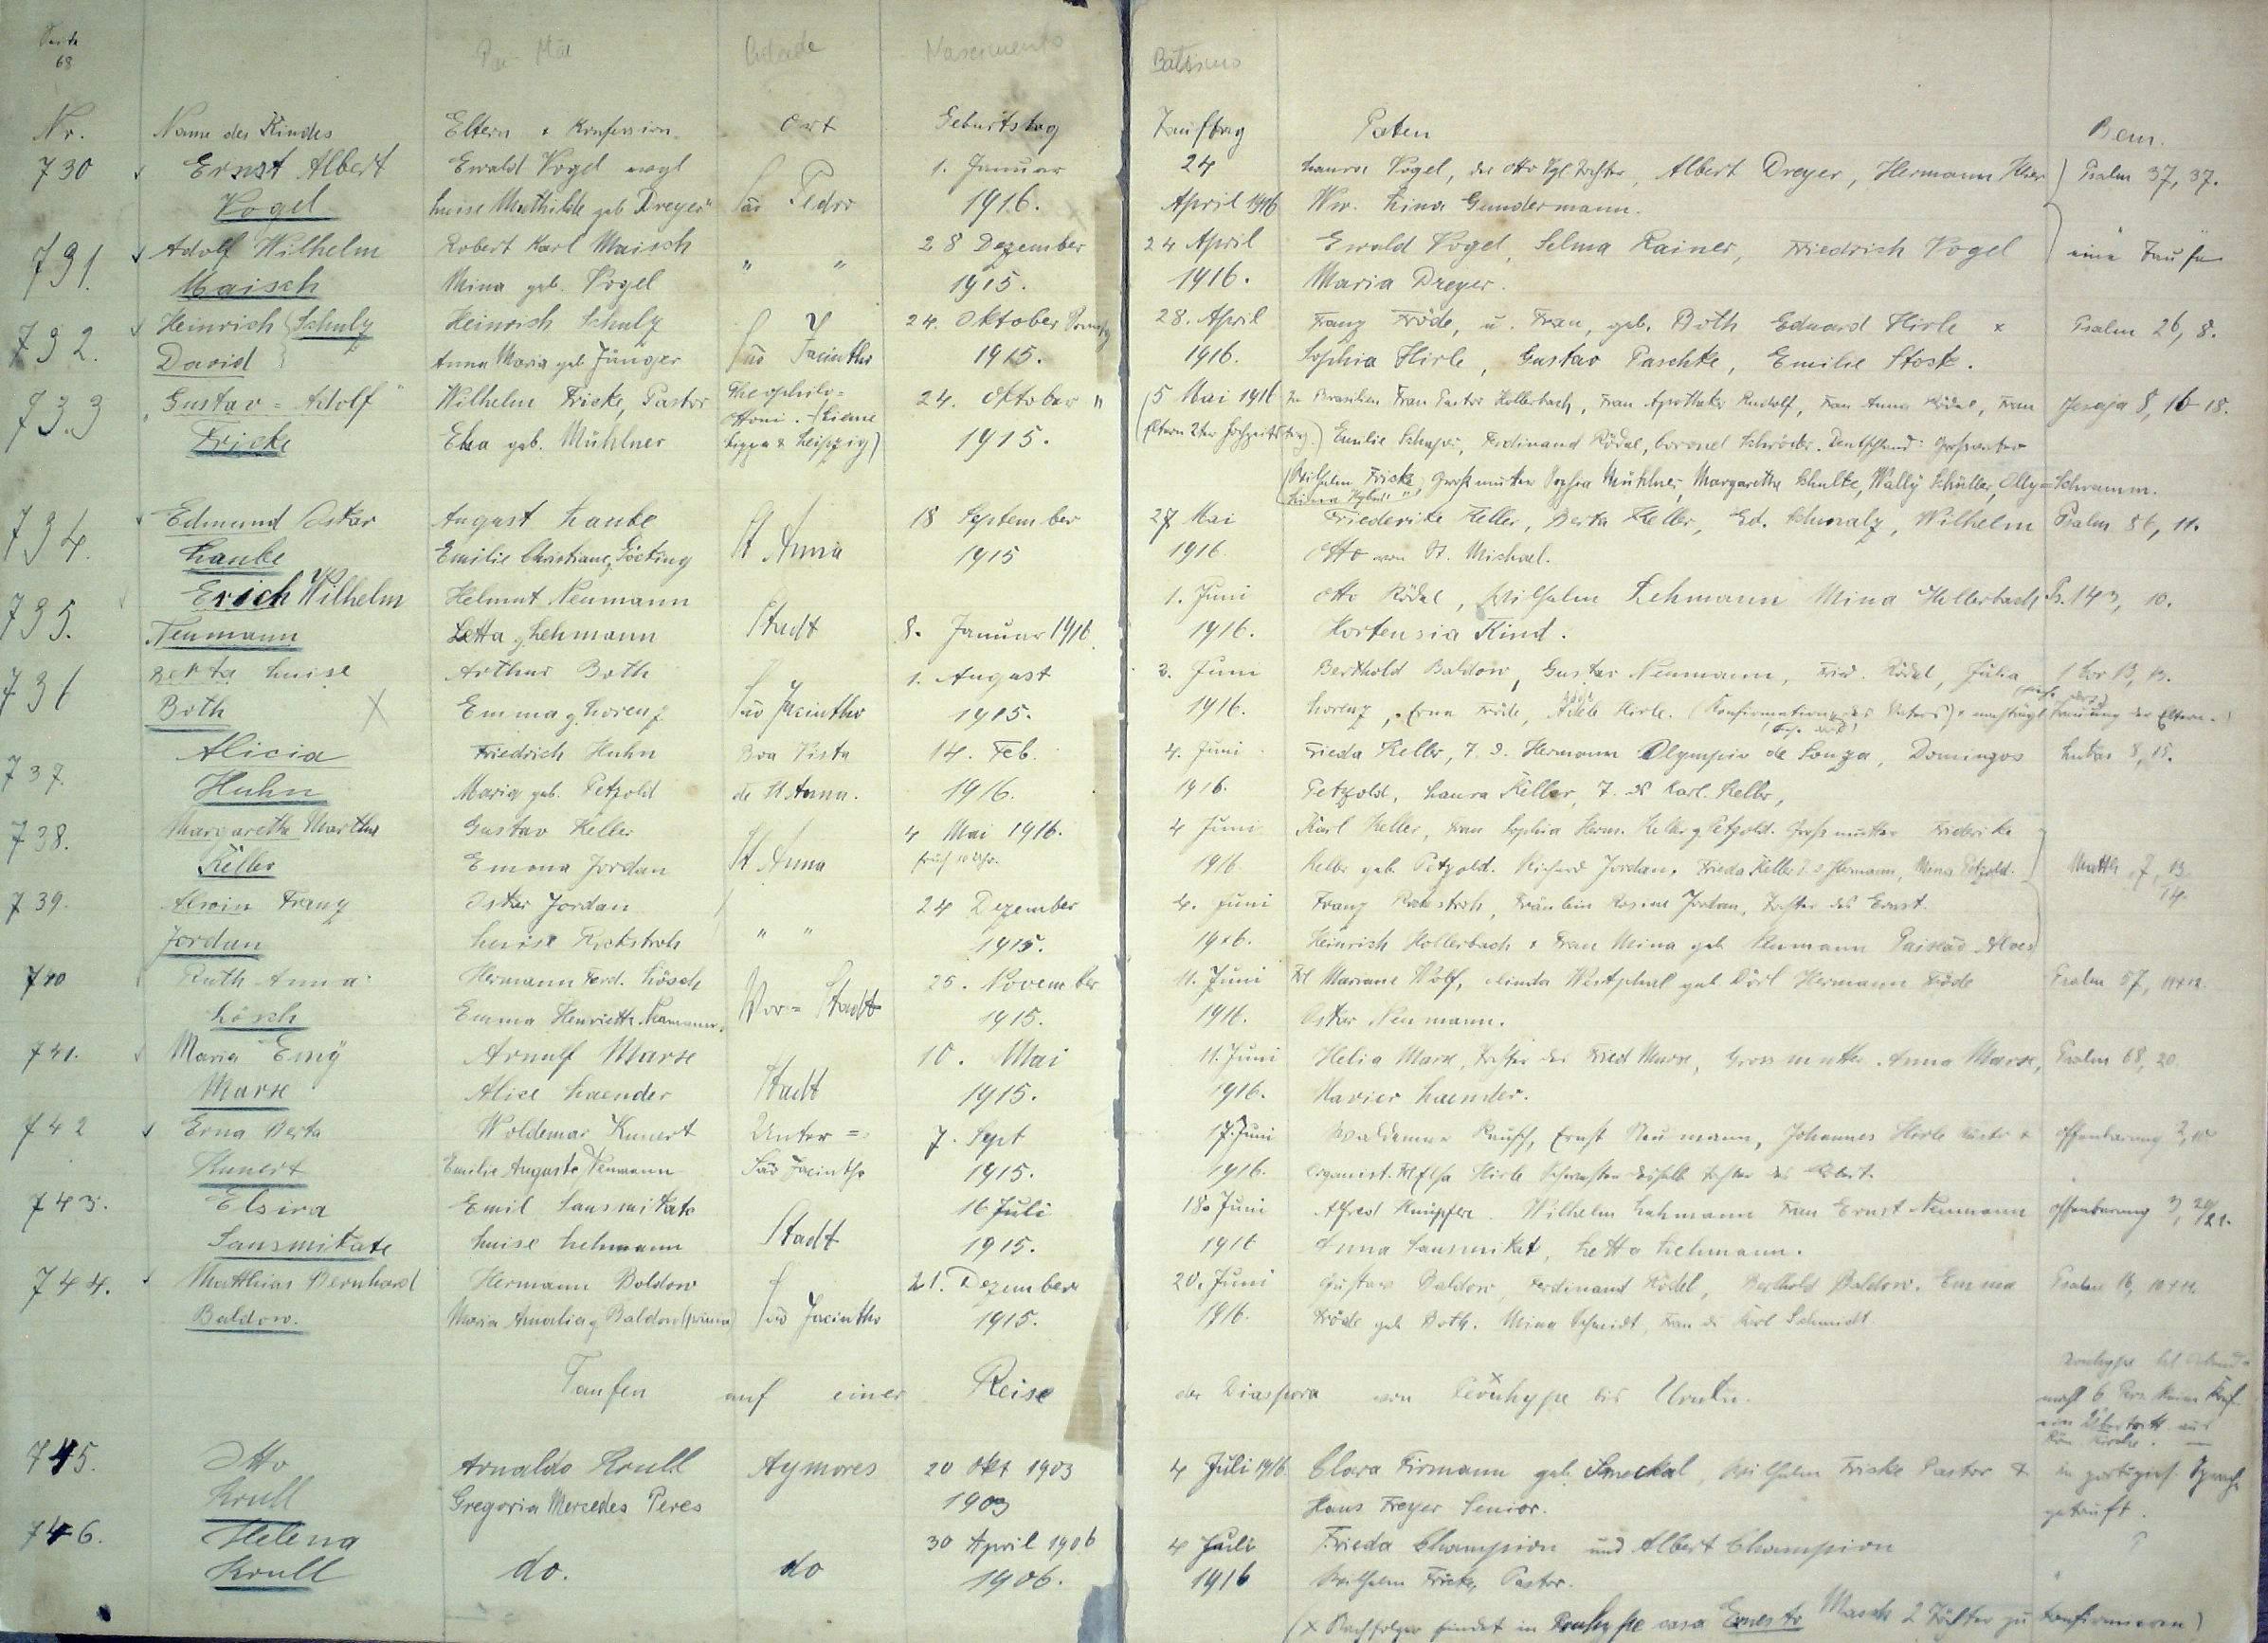 Seite
68
Pai Mãe Cidade Nascimento Batismo
Nr. Name des Kindes Eltern + Konfession Ort Geburtstag Tauftag Paten Bem.
730 Ernst Albert Ewald Vogel evgl 1. Januar 24 Vogel, der Otto Vgl Tochter, Albert Dreyer, Hermann Psalm 37, 37.
Vogel Luise Mathilde geb Dreyer São Pedro 1916. April 1916 Ww. Lina Gundermann.
731. Adolf Wilhelm Robert Karl Maisch 28 Dezember 24 April Ewald Vogel, Selma Rainer, Friedrich Vogel eine Taufe
Maisch Mina geb. Vogel " " 1915. 1916. Maria Dreyer.
732. Heinrich Schulz Heinrich Schulz São Jacintho 24. Oktober 28. April Franz Fröde, u. Frau, geb. Both Eduard Hirle + Psalm 26, 8.
David Anna Maria geb Jünger 1915. 1916. Sophia Hirle, Gustav Paschke, Emilie Stock.
733 "Gustav-Adolf" Wilhelm Fricke, Pastor Theophilo- 24. Oktober " (5 Mai 1916 In Brasilien Frau Pastor Hollerbach, Frau Apotheker Rudolf, Frau Anna Rödel, Frau Jesaja 8, 16-18.
Fricke Elsa geb. Mühlner Ottoni. Lippe & Leipzig) 1915. (Eltern 2ter Hochzeitstag) Emilie Schaper, Ferdinand Rödel, Coronel Schröder. Deutschland: Grossvater
Wilhelm Fricke, Grossmutter Sophia Mühlner, Margaretha Schulte, Wally Schüller, Olly Schramm.
734. Edmund Oskar August Laube St Anna 18 September 27 Mai Friederike Keller, Berta Keller, Ed. Schmalz, Wilhelm Psalm 86, 11.
Laube Emilie Christiane Göcking 1915 1916 Otto von St. Michael.
735. Erich Wilhelm Helmut Neumann 1. Juni Otto Rödel, Wilhelm Lehmann Mina Hollerbach Ps. 143, 10.
Neumann Letta g. Lehmann Stadt 8. Januar 1916. 1916. Hortensia Kind.
736 Berta Luise Arthur Both 1. August 2. Juni Berthold Baldow, Gustav Neumann, Fried. Rödel, Julia 1 Cor 13, 13.
Both Emma g. Lorenz São Jacintho 1915. 1916. Lorenz, Erna Fröde, Adele Hirle. (Konfirmation des Vaters) + nachträgl Trauung der Eltern.)
737. Alicia Friedrich Huhn Boa Vista 14. Feb. 4. Juni Frieda Keller, T. d. Hermann Olympio de Souza, Domingos Lukas 8, 15.
Huhn Maria geb. Petzold de St Anna. 1916. 1916. Petzold, Laura Keller, T. d. Karl Keller,
738. Margaretha Martha Gustav Keller 4 Mai 1916. 4 Juni Karl Keller, Frau Sophia Herm. Keller g Petzold. Grossmutter Friderike
Keller Emma Jordan St Anna früh 10 Uhr. 1916 Keller geb. Petzold. Richard Jordan, Frieda Keller T. d Hermann, Mina Petzold. Matth. 7, 13.
14.
739. Alwin Franz Oskar Jordan 24 Dezember 4. Juni Franz Rockstroh, Fräulein Rosine Jordan, Tochter des Ernst.
Jordan Luise Rockstroh " " 1915. 1916. Heinrich Hollerbach + Frau Mina geb. Neumann Alves
740 Ruth Anna Hermann Ferd. Lösch 25. November 11. Juni Frl Mariane Wolf, Linda Westphal geb Dörl Hermann Fröde Psalm 57,
Lösch Emma Henriette Neumann. Vor-Stadt 1915. 1916. Oskar Neumann.
741. Maria Emy Arnulf Marx 10. Mai 11. Juni Helia Marx, Tochter des Fried Marx, Grossmutter Anna Marx, Psalm 68, 20.
Marx Alice Laender Stadt 1915. 1916. Xavier Laender.
742 Erna Berta Woldemar Kunert Unter- 7. Sept 17. Juni Waldemar Rausch, Ernst Neumann, Johannes Hirle Küster + Offenbarung 2, 10
Kunert Emilie Auguste Neumann São Jacintho 1915. 1916. Organist. Frl Elsa Hirle
743. Elsira Emil Sausmikat 16 Juli 18. Juni Alfred Knüpfer. Wilhelm Lehmann Frau Ernst Neumann Offenbarung 3, 20/21.
Sausmikate Luise Lehmann Stadt 1915. 1916 Anna Sausmikat, Letta Lehmann.
744. Matthias Bernhard Hermann Baldow 21. Dezember 20. Juni Gustav Baldow, Ferdinand Rödel, Berthold Baldow. Emma Psalm 16,
Baldow. Maria Amalia g Baldow São Jacintho 1915. 1916. Fröde geb Both. Mina Schmidt, Frau d. Karl Schmidt.
Taufen auf einer Reise der Diaspora von bis Urutu.
745. Otto Arnaldo Krull Aymores 20 Okt 1903 4 Juli 1916 Clara Firmann geb. Smeckal, Wilhelm Fricke Pastor & in portugies. Sprache
Krull Gregoria Mercedes Peres 1903 Hans Freyer Senior. getauft.
746. Helena 30 April 1906 4 Juli Frieda Champion und Albert Champion
Krull do. do 1906. 1916 Wilhelm Fricke, Pastor.
(x Nachfolger findet in casa Ernesto Masch 2 Töchter zu konfirmieren)